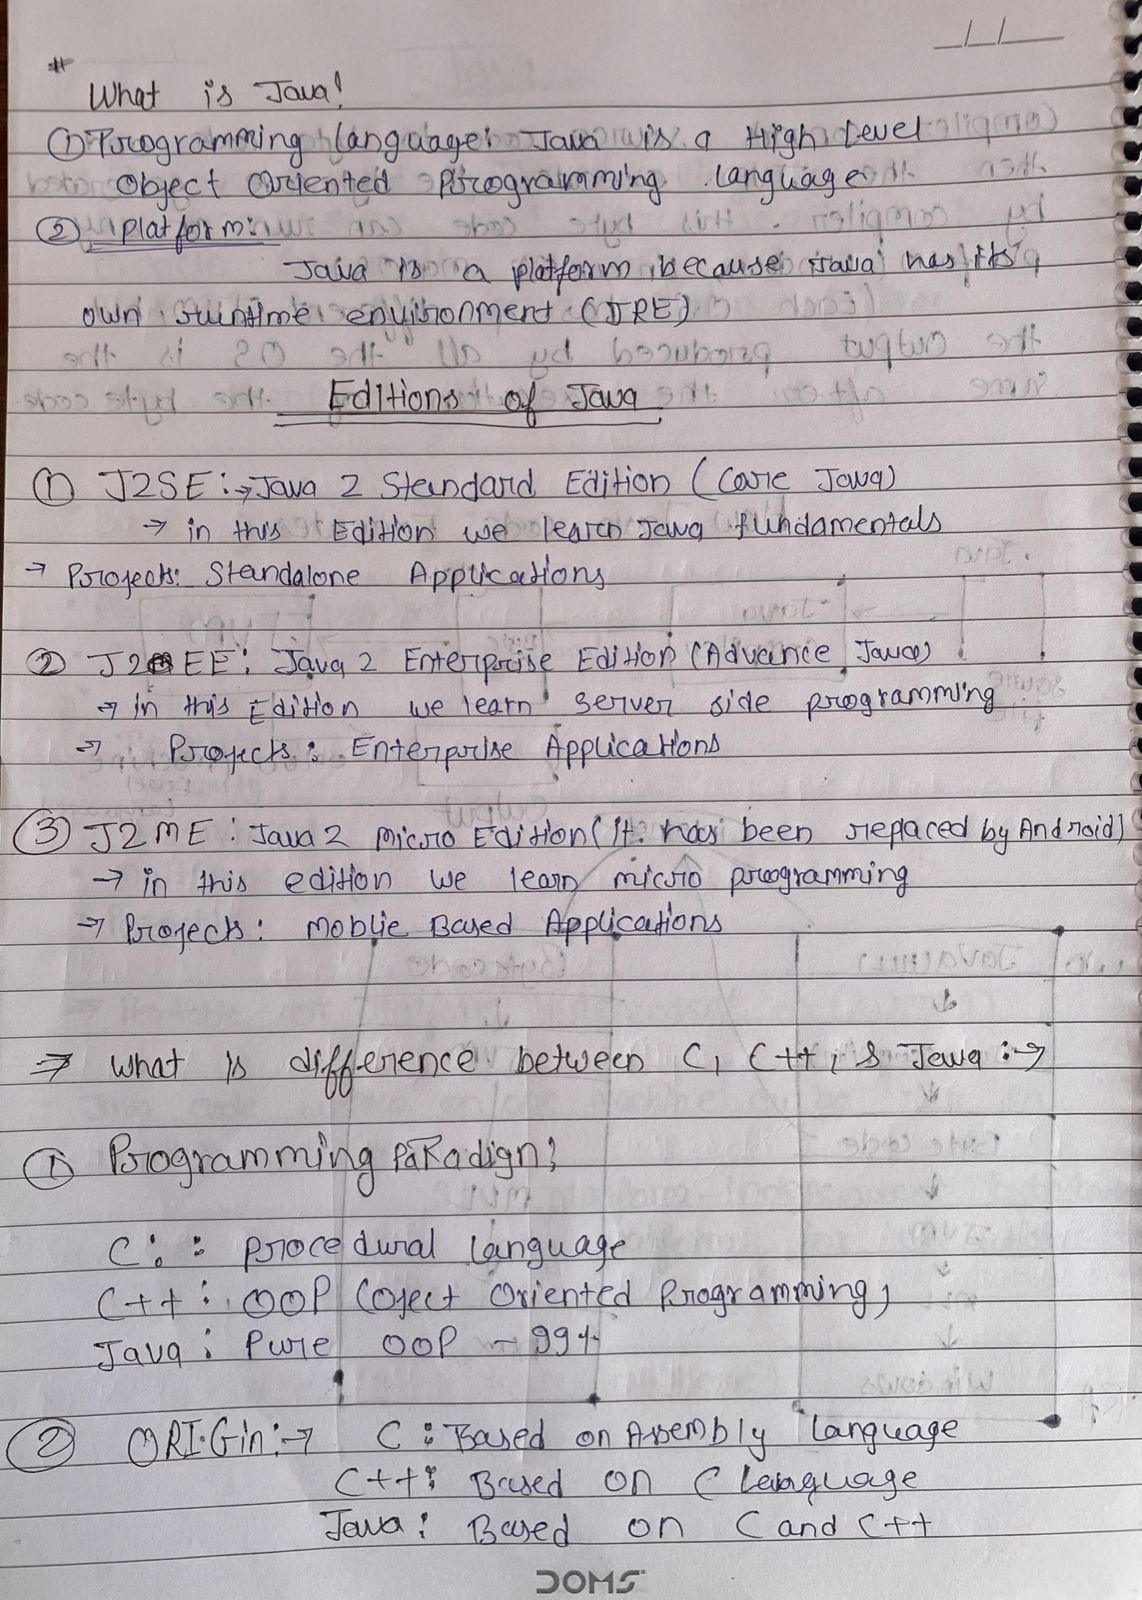 #
What is Java!
① Programming language: Java is a High Level
Object Oriented Programming language
② platform:
Java is a platform because Java has its
own runtime environment (JRE)
Editions of Java
① J2SE :→ Java 2 Standard Edition (Core Java)
→ in this Edition we learn Java fundamentals
→ Projects: Standalone Applications
② J2EE : Java 2 Enterprise Edition (Advance Java)
→ in this Edition we learn server side programming
→ Projects : Enterprise Applications
③ J2ME : Java 2 Micro Edition (It has been replaced by Android)
→ in this edition we learn micro programming
→ Projects : Moblie Based Applications
⇒ What is difference between C, C++, & Java :→
① Programming PaRadign:
C : : procedural language
C++ : OOP (Oject Oriented Programming)
Java : Pure OOP ~ 99%
② ORIGin :→ C : Based on Assembly language
C++ : Based on C language
Java : Based on C and C++
DOMS